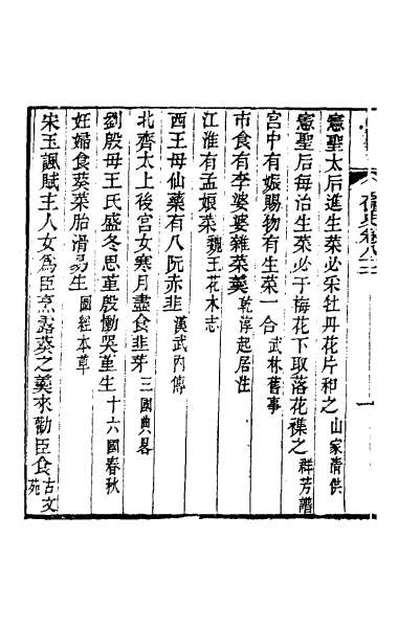 憲聖太后進生菜必采牡丹花片和之 山家清供
憲聖后每治生菜必于梅花下取落花襍之 群芳譜
宮中有娠賜物有生菜一合 武林舊事
市食有李婆婆雜菜羹 乾淳起居注
江淮有孟娘菜 魏王花木志
西王母仙藥有八阮赤韭 漢武內傳
北齊太上後宮女寒月盡食韭芽 三國典畧
劉殷母王氏盛冬思堇殷慟哭堇生 十六國春秋
妊婦食葵菜胎滑易生 圖經本草
宋玉諷賦主人女為臣烹露葵之羹來勸臣食 古文苑